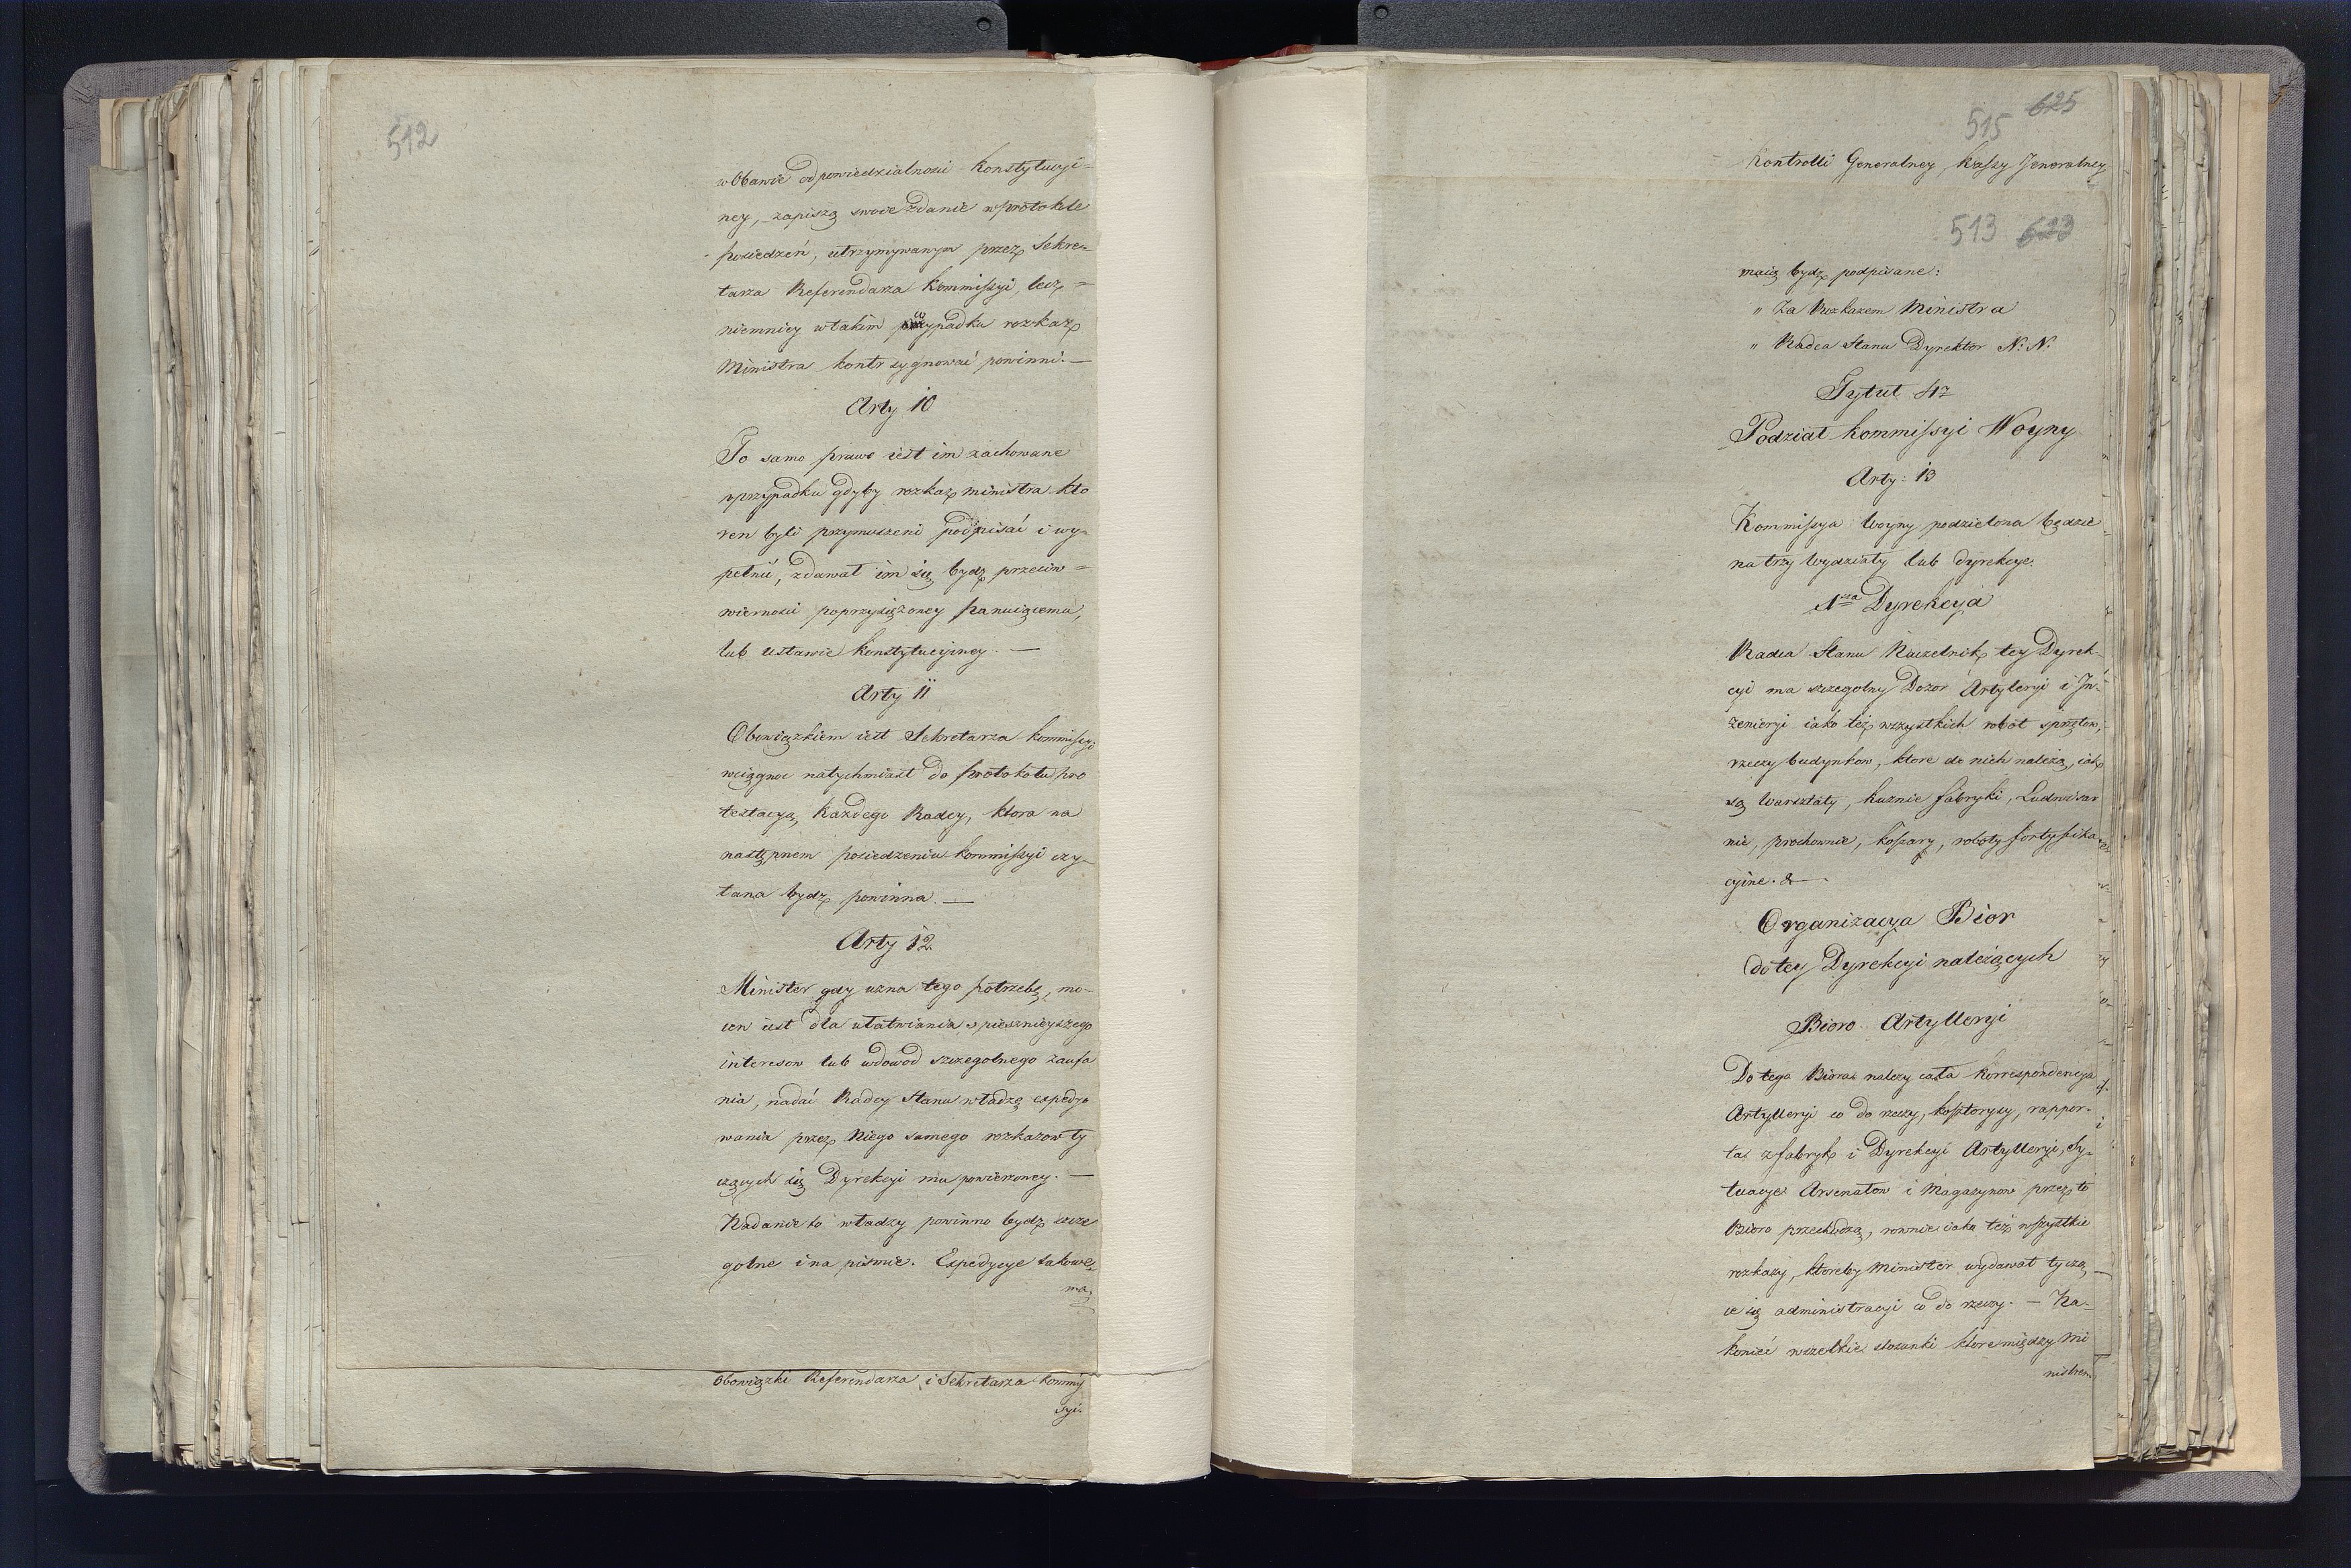 512
w Obawie odpowiedzialności Konstytucyi=
ney, zapiszą swoie zdanie w protokole
posiedzeń, utrzymywanym przez Sekre=
tarza Referendarza Kommissyi, lecz =
niemniey w takim przypadku rozkaz
Ministra kontrsygnować powinni. —
Arty 10
To samo prawo iest im zachowane
w przypadku gdyby rozkaz Ministra kto
ren byli przymuszeni podpisać i wy=
pełnić, zdawał im się bydz przeciw=
wierności poprzysiężoney Panuiącemu,
lub Ustawie Konstytucyiney. —
Arty 11
Obowiązkiem iest Sekretarza Kommissyi
wciągnąc natychmiast do protokołu pro
testacyą każdego Radcy, ktora na
następnem posiedzeniu Kommissyi czy=
tana bydz powinna. —
Arty 12
Minister gdy uzna tego potrzebę, mo=
cen iest dla ułatwiania spiesznieyszego
interesow lub w dowod szczegolnego zaufa
nia, nadać Radcy Stanu władzę expedyo
wania przez Niego samego rozkazow ty
czących się Dyrekcyi mu powierzoney. —
Nadanie to władzy powinno bydz szcze
golne i na pismie. Expedycye takowe
maią
Obowiązki Referendarza i Sekretarza Kommis
syi.
625
515
Kontrolli Generalney, Kassy Jeneralney
513 623
maią bydz podpisane:
" Za Rozkazem Ministra
" Radca Stanu Dyrektor N. N.
Tytuł 4ty
Podział Kommissyi Woyny
Arty: 13
Kommissya Woyny podzielona będzie
na trzy Wydziały lub Dyrekcye.
1sza Dyrekcya
Radca Stanu Naczelnik tey Dyrek=
cyi ma szczegolny Dozor Artyleryi i In=
żenieryi iako też wszystkich robot sprzętow,
rzeczy budynkow, ktore do nich należą, iak
są Warsztaty, kuznie fabryki, Ludwisar
nie, prochownie, koszary, roboty fortyfika
cyine. & —
Organizacya Bior
do tey Dyrekcyi należących
Bioro Artylleryi
Do tego Biora należy cała korrespondencya
Artylleryi co do rzeczy, kosztorysy, rappor=
ta z fabryk i Dyrekcyi Artylleryi, Sy=
tuacye Arsenałow i Magazynow przez to
Bioro przechodzą, rownie iako też wszystkie
rozkazy, ktoreby Minister wydawał tyczą=
ce się administracyi co do rzeczy. — Na=
koniec wszelkie stosunki ktore między Mi
nistrem